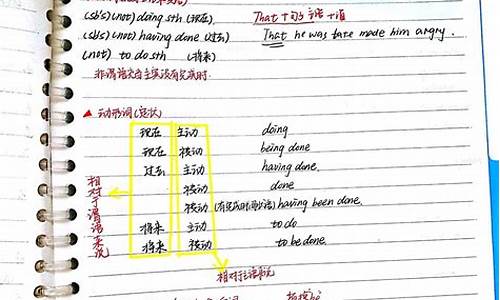 (sb's) (not) doing sth (现在) That + 句子 主语 + 谓
(sb's) (not) having done (过去) That he was late made him angry.
(not) to do sth (将来)
非谓语作主语没有完成时.
▲ 动形词(定状)
现在 主动 doing
现在 被动 being done
过去 主动 having done.
被动 done
被动 having been done.
将来 主动 to do
将来 被动 to be done.
相对于谓语来说
相对主语来说